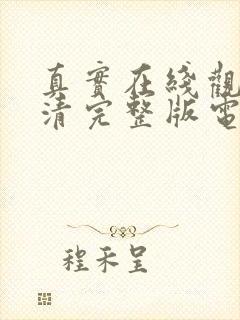 真實在綫觀
清完整版電
程禾呈